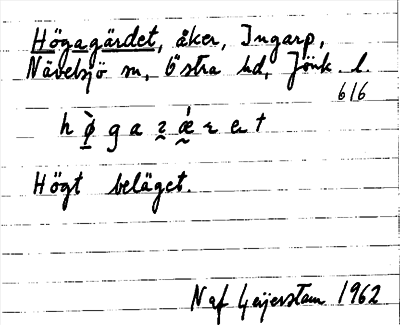 Högagärdet, åker, Ingarp,
Nävelsjö sn, Östra hd, Jönk. l.
616
Högt beläget.
N af Geijerstam 1962